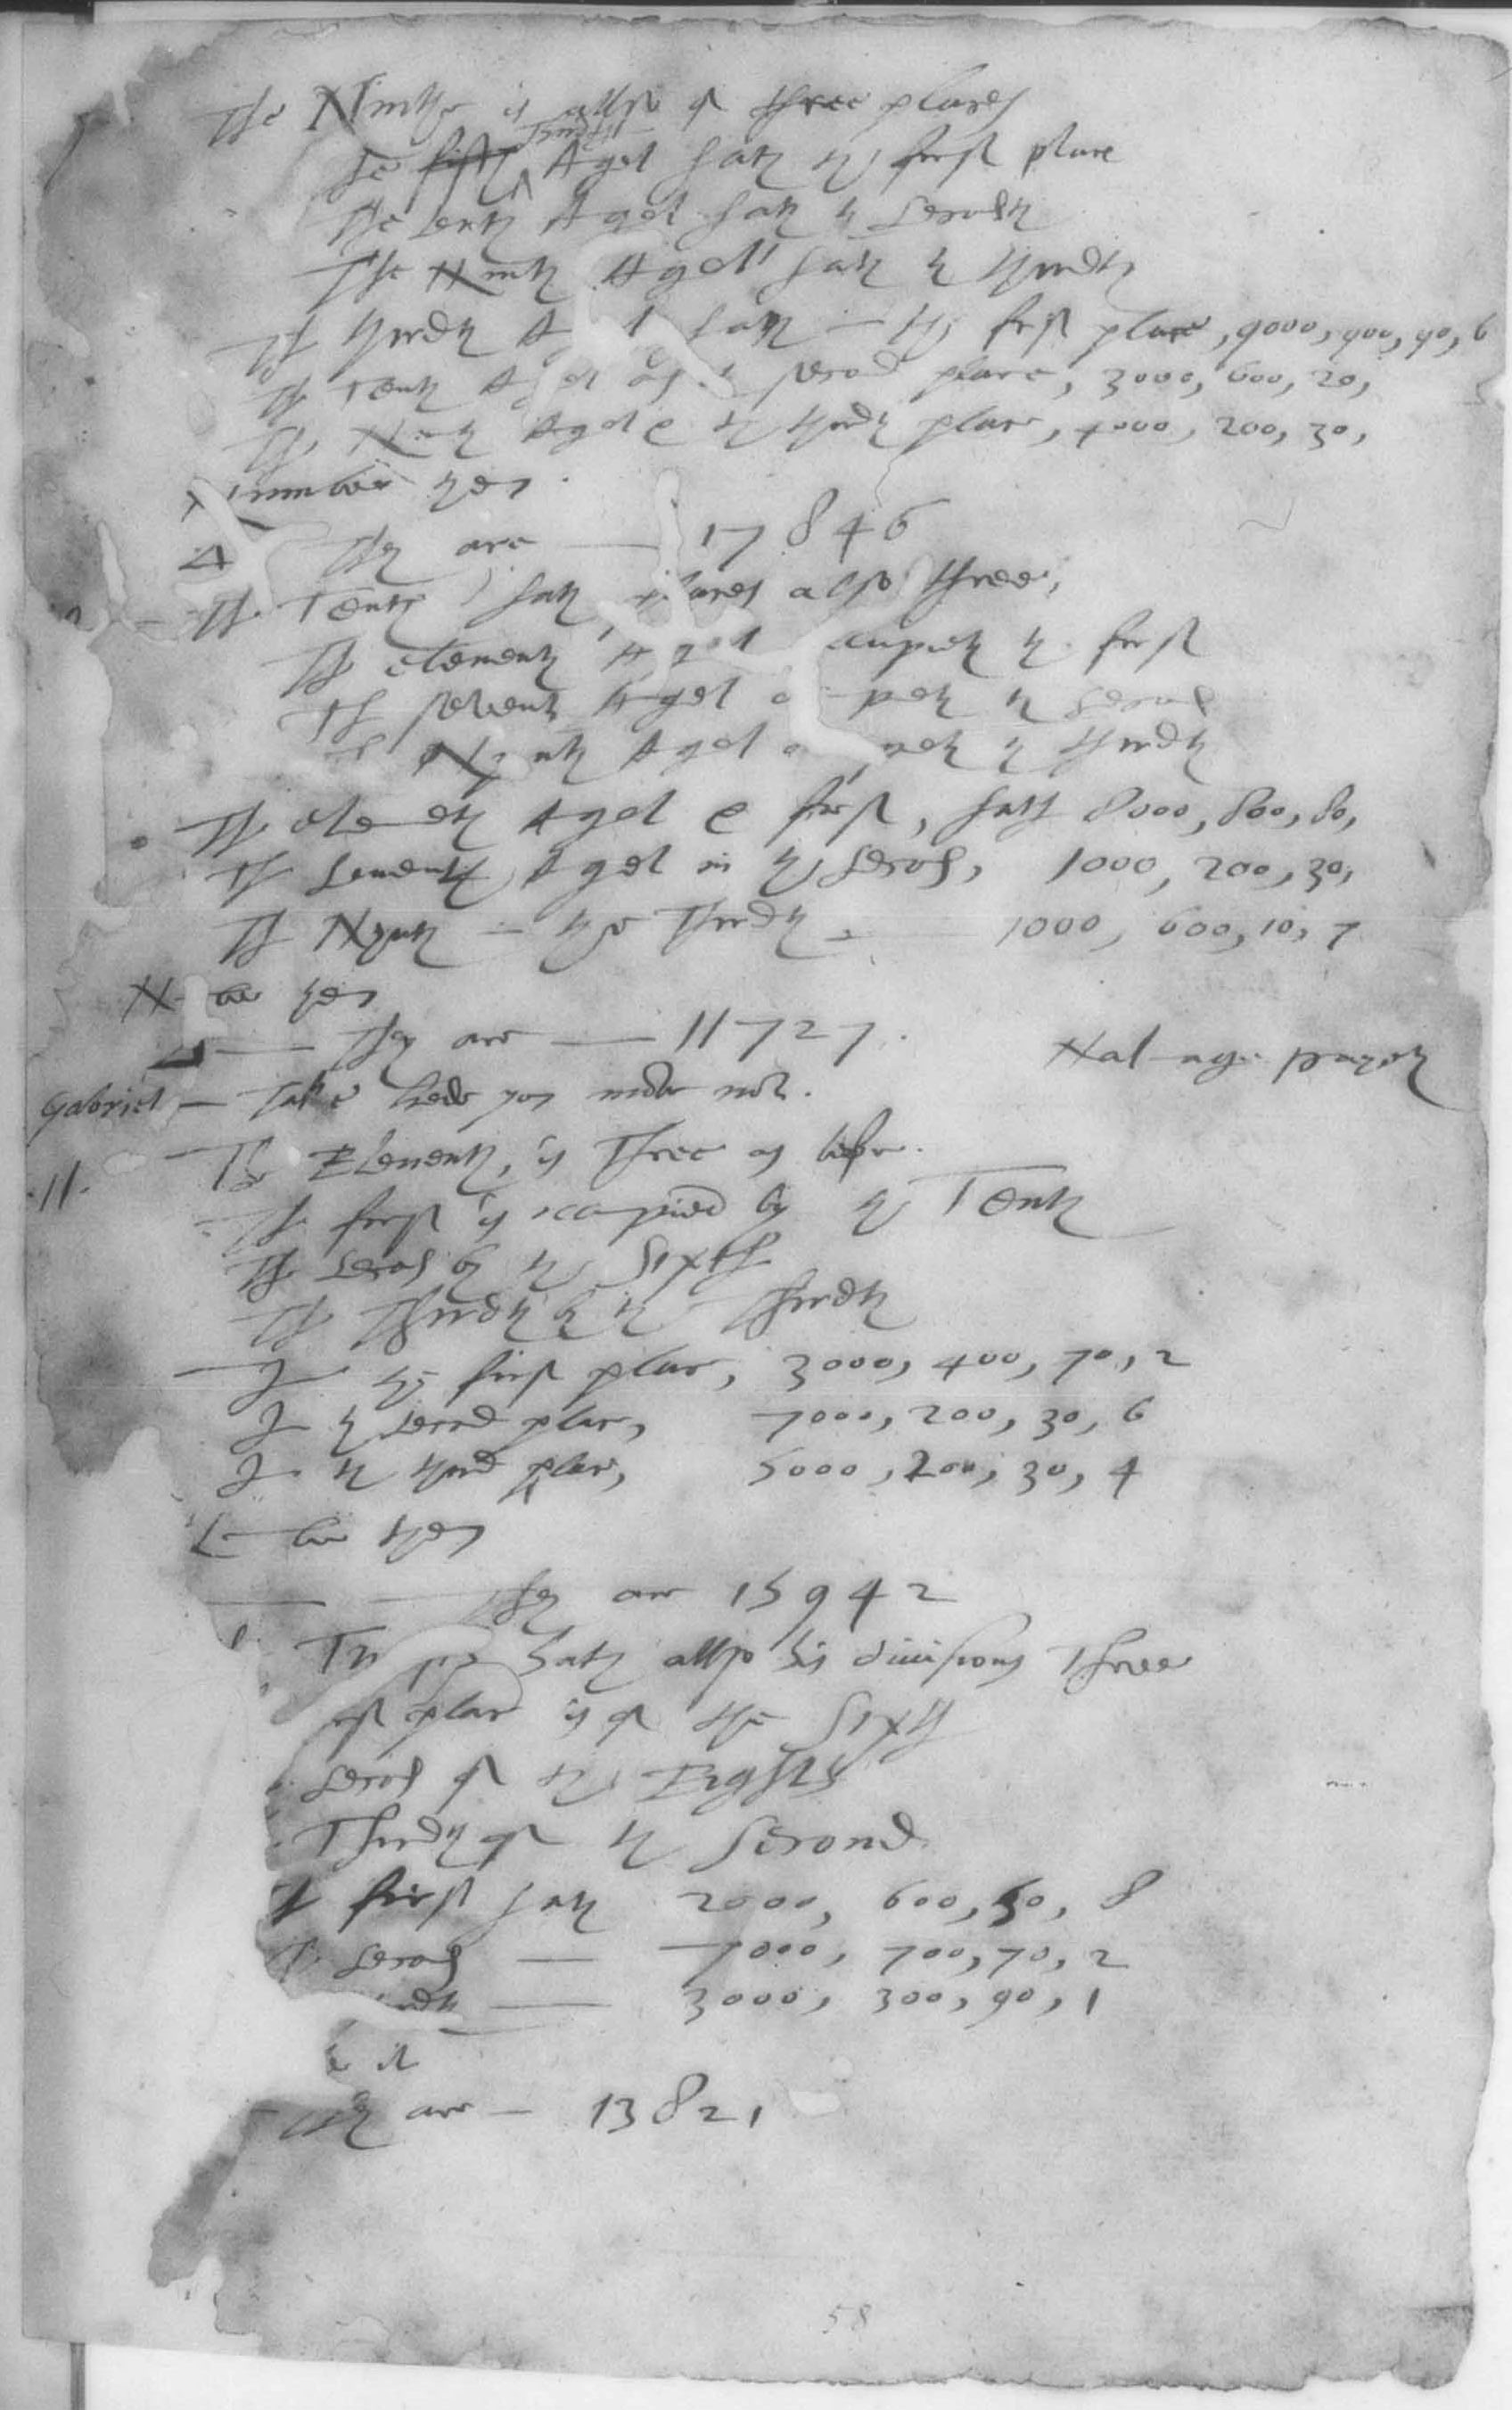 The Ninthe is allso of three places
The fifth Thirdth Angel hath the first place
The tenth Angel hath the second
The Ninth Angel hath the thirdth
The thirdth A l hath the first place, 9000, 900, 90, 6
The Tenth Angel as the second place, 3000, 600, 20,
The Ninth Angel the thirdth place, 4000, 200, 30,
Number them
Δ They are — 17846
The Tenth hath places also three,
The eleventh Angel occupieth the first
The seventh Angel occupieth the second
The Nynth Angel occupieth the thirdth
The eleventh Angel first, hath 8000, 800, 80,
The seventh Angel in the second, 1000, 200, 30,
The Nynth the Thirdth, 1000, 600, 10, 7
Number them
Δ — They are — 11727.
Nalvage prayeth
Gabriel — Take hede you move not.
11. The Eleventh, is Three as before.
The first is occupied by the Tenth
The second by the Sixth
The Thirdth by the thirdth
In the first place, 3000, 400, 70, 2
In the second place, 7000, 200, 30, 6
In the third place, 5000, 200, 30, 4
Number them
They are 15942
Th hath allso his divisions Three
rst place is of the Sixth
second of the Eighth
Thirdth of the Second
The first hath 2000, 600, 50, 8
The second — 7000, 700, 70, 2
irdth — 3000, 300, 90, 1
it
They are — 13821
58